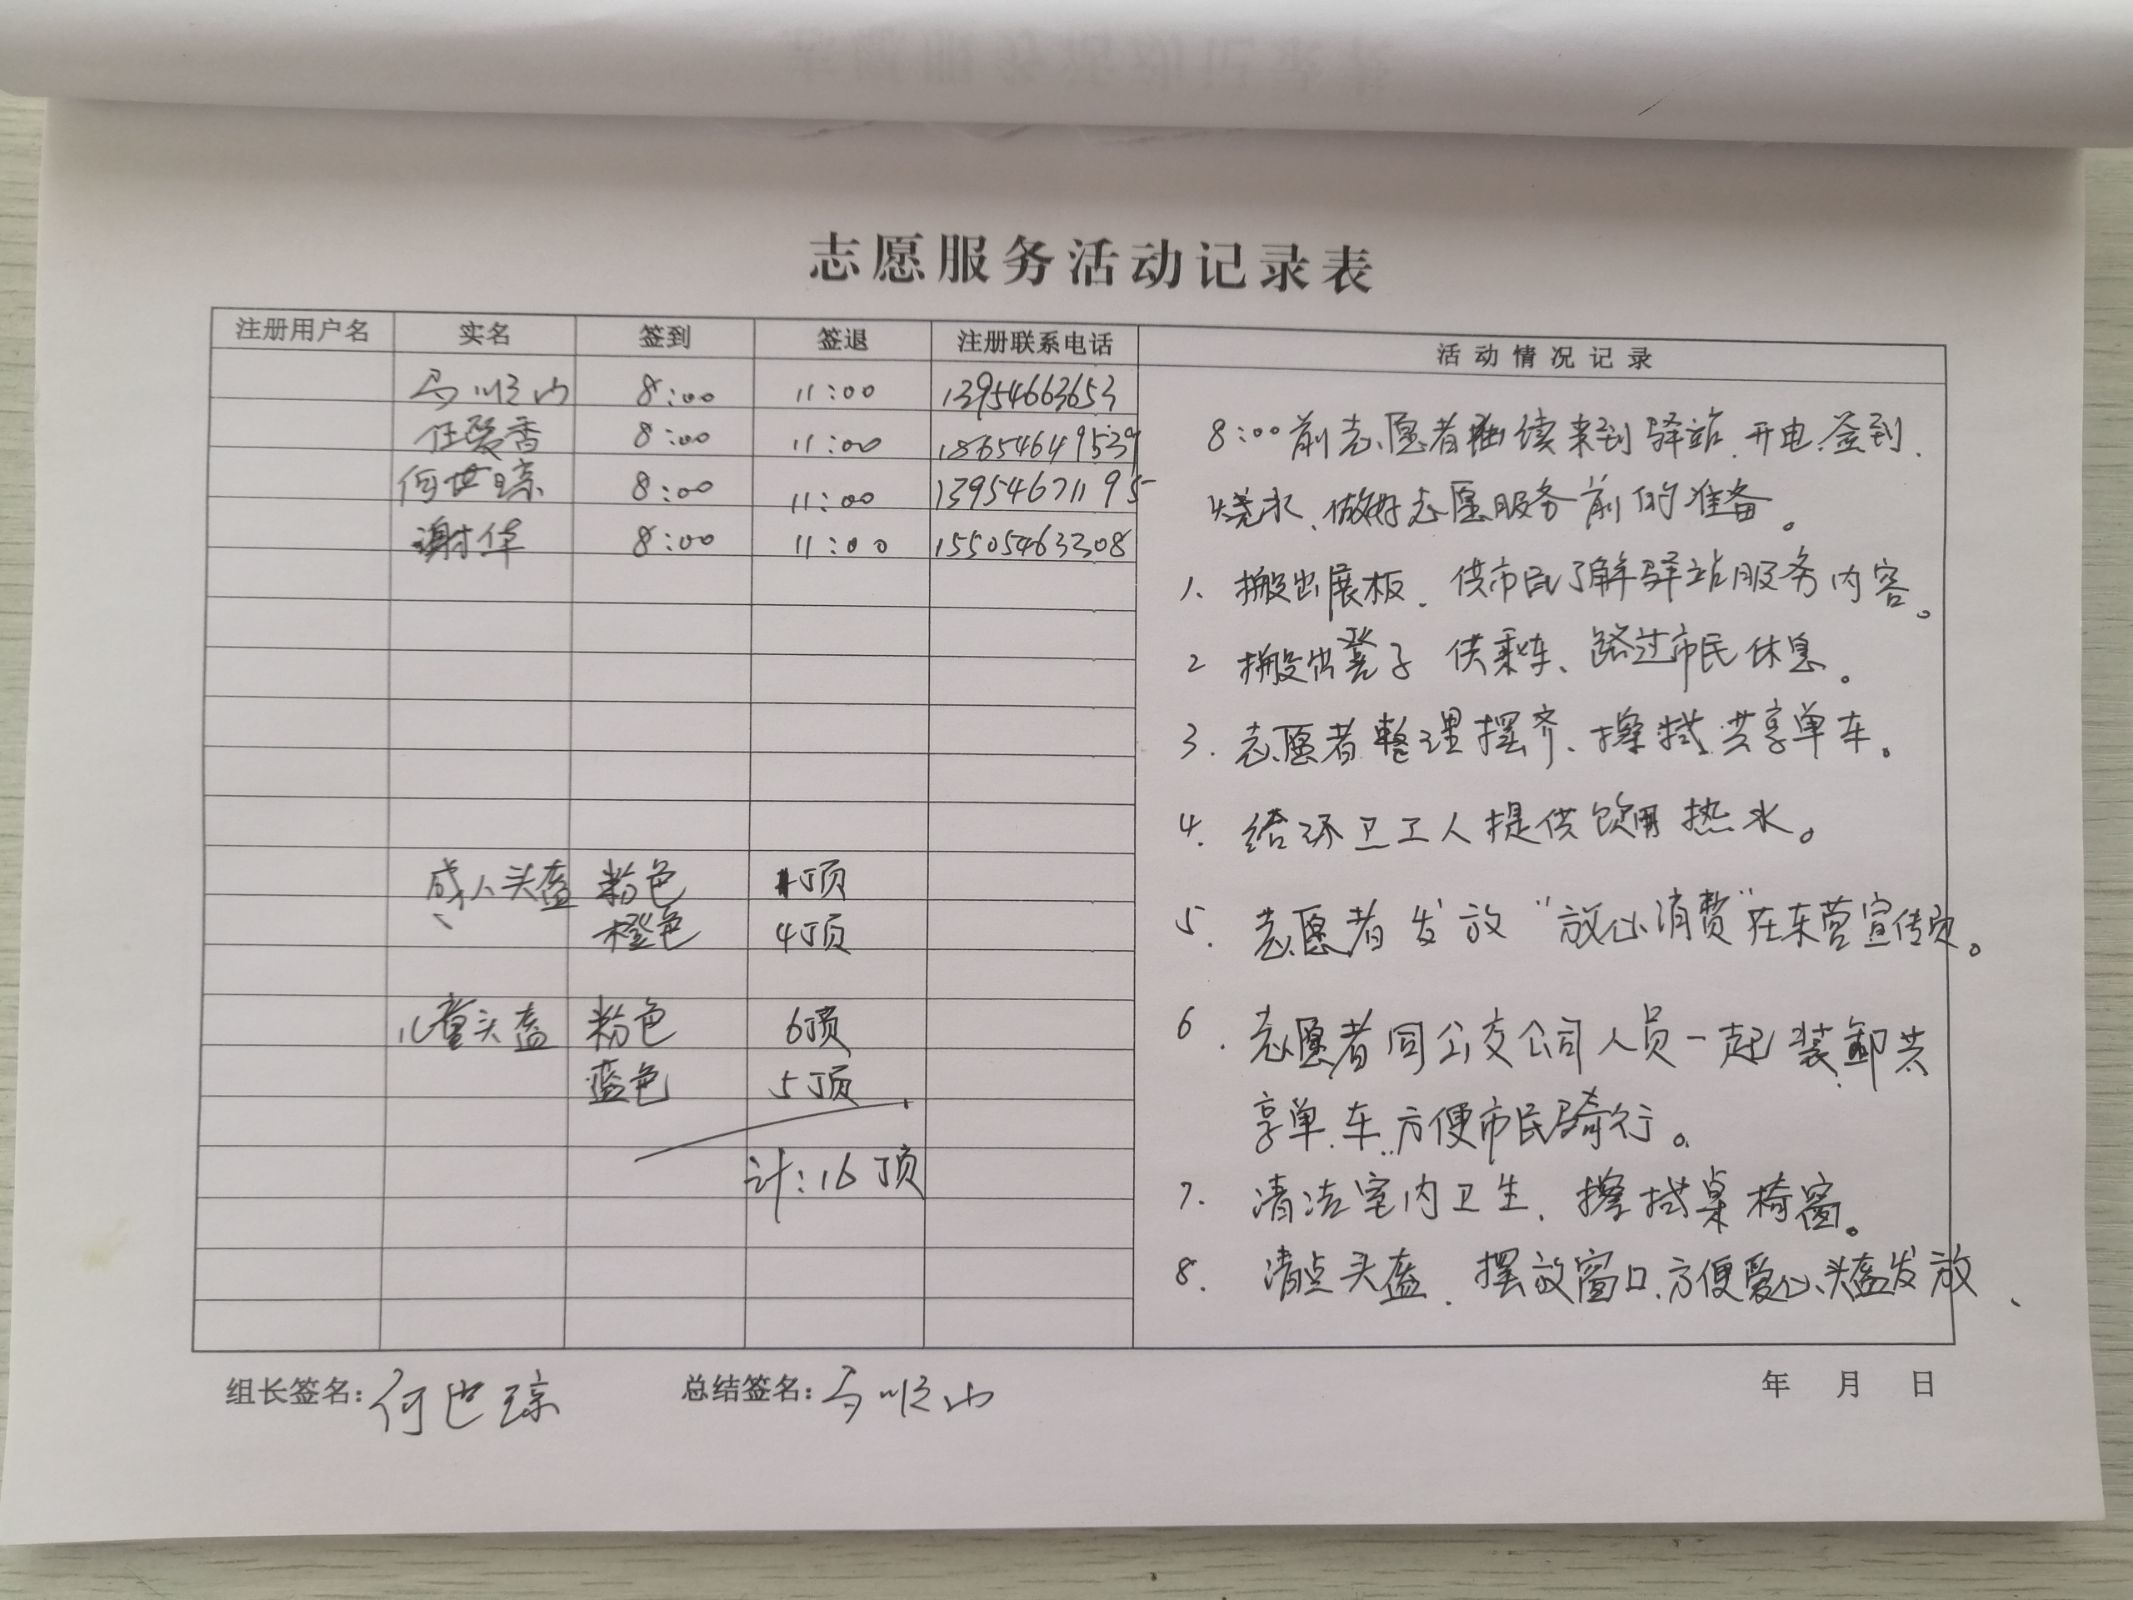 志愿服务活动记录表
注册用户名 实名 签到 签退 注册联系电话 活动情况记录
马顺山 8:00 11:00 13954663653
任爱香 8:00 11:00 18654649539
何世琼 8:00 11:00 13954671195
谢华 8:00 11:00 15505463308
成人头盔 粉色 1顶
橙色 4顶
儿童头盔 粉色 6顶
蓝色 5顶
计:16顶
8:00前志愿者陆续来到驿站、开电、签到、
烧水、做好志愿服务前的准备。
1、搬出展板、供市民了解驿站服务内容。
2 搬出凳子 供乘车、路过市民休息。
3.志愿者整理摆齐、擦拭共享单车。
4.给环卫工人提供饮用热水。
5.志愿者发放“放心消费”在东营宣传页。
6.志愿者同公交公司人员一起装卸共
享单车、方便市民骑行。
7.清洁室内卫生、擦拭桌椅窗。
8.清点头盔、摆放窗口、方便爱心头盔发放、
组长签名:何世琼 总结签名:马顺山 年 月 日